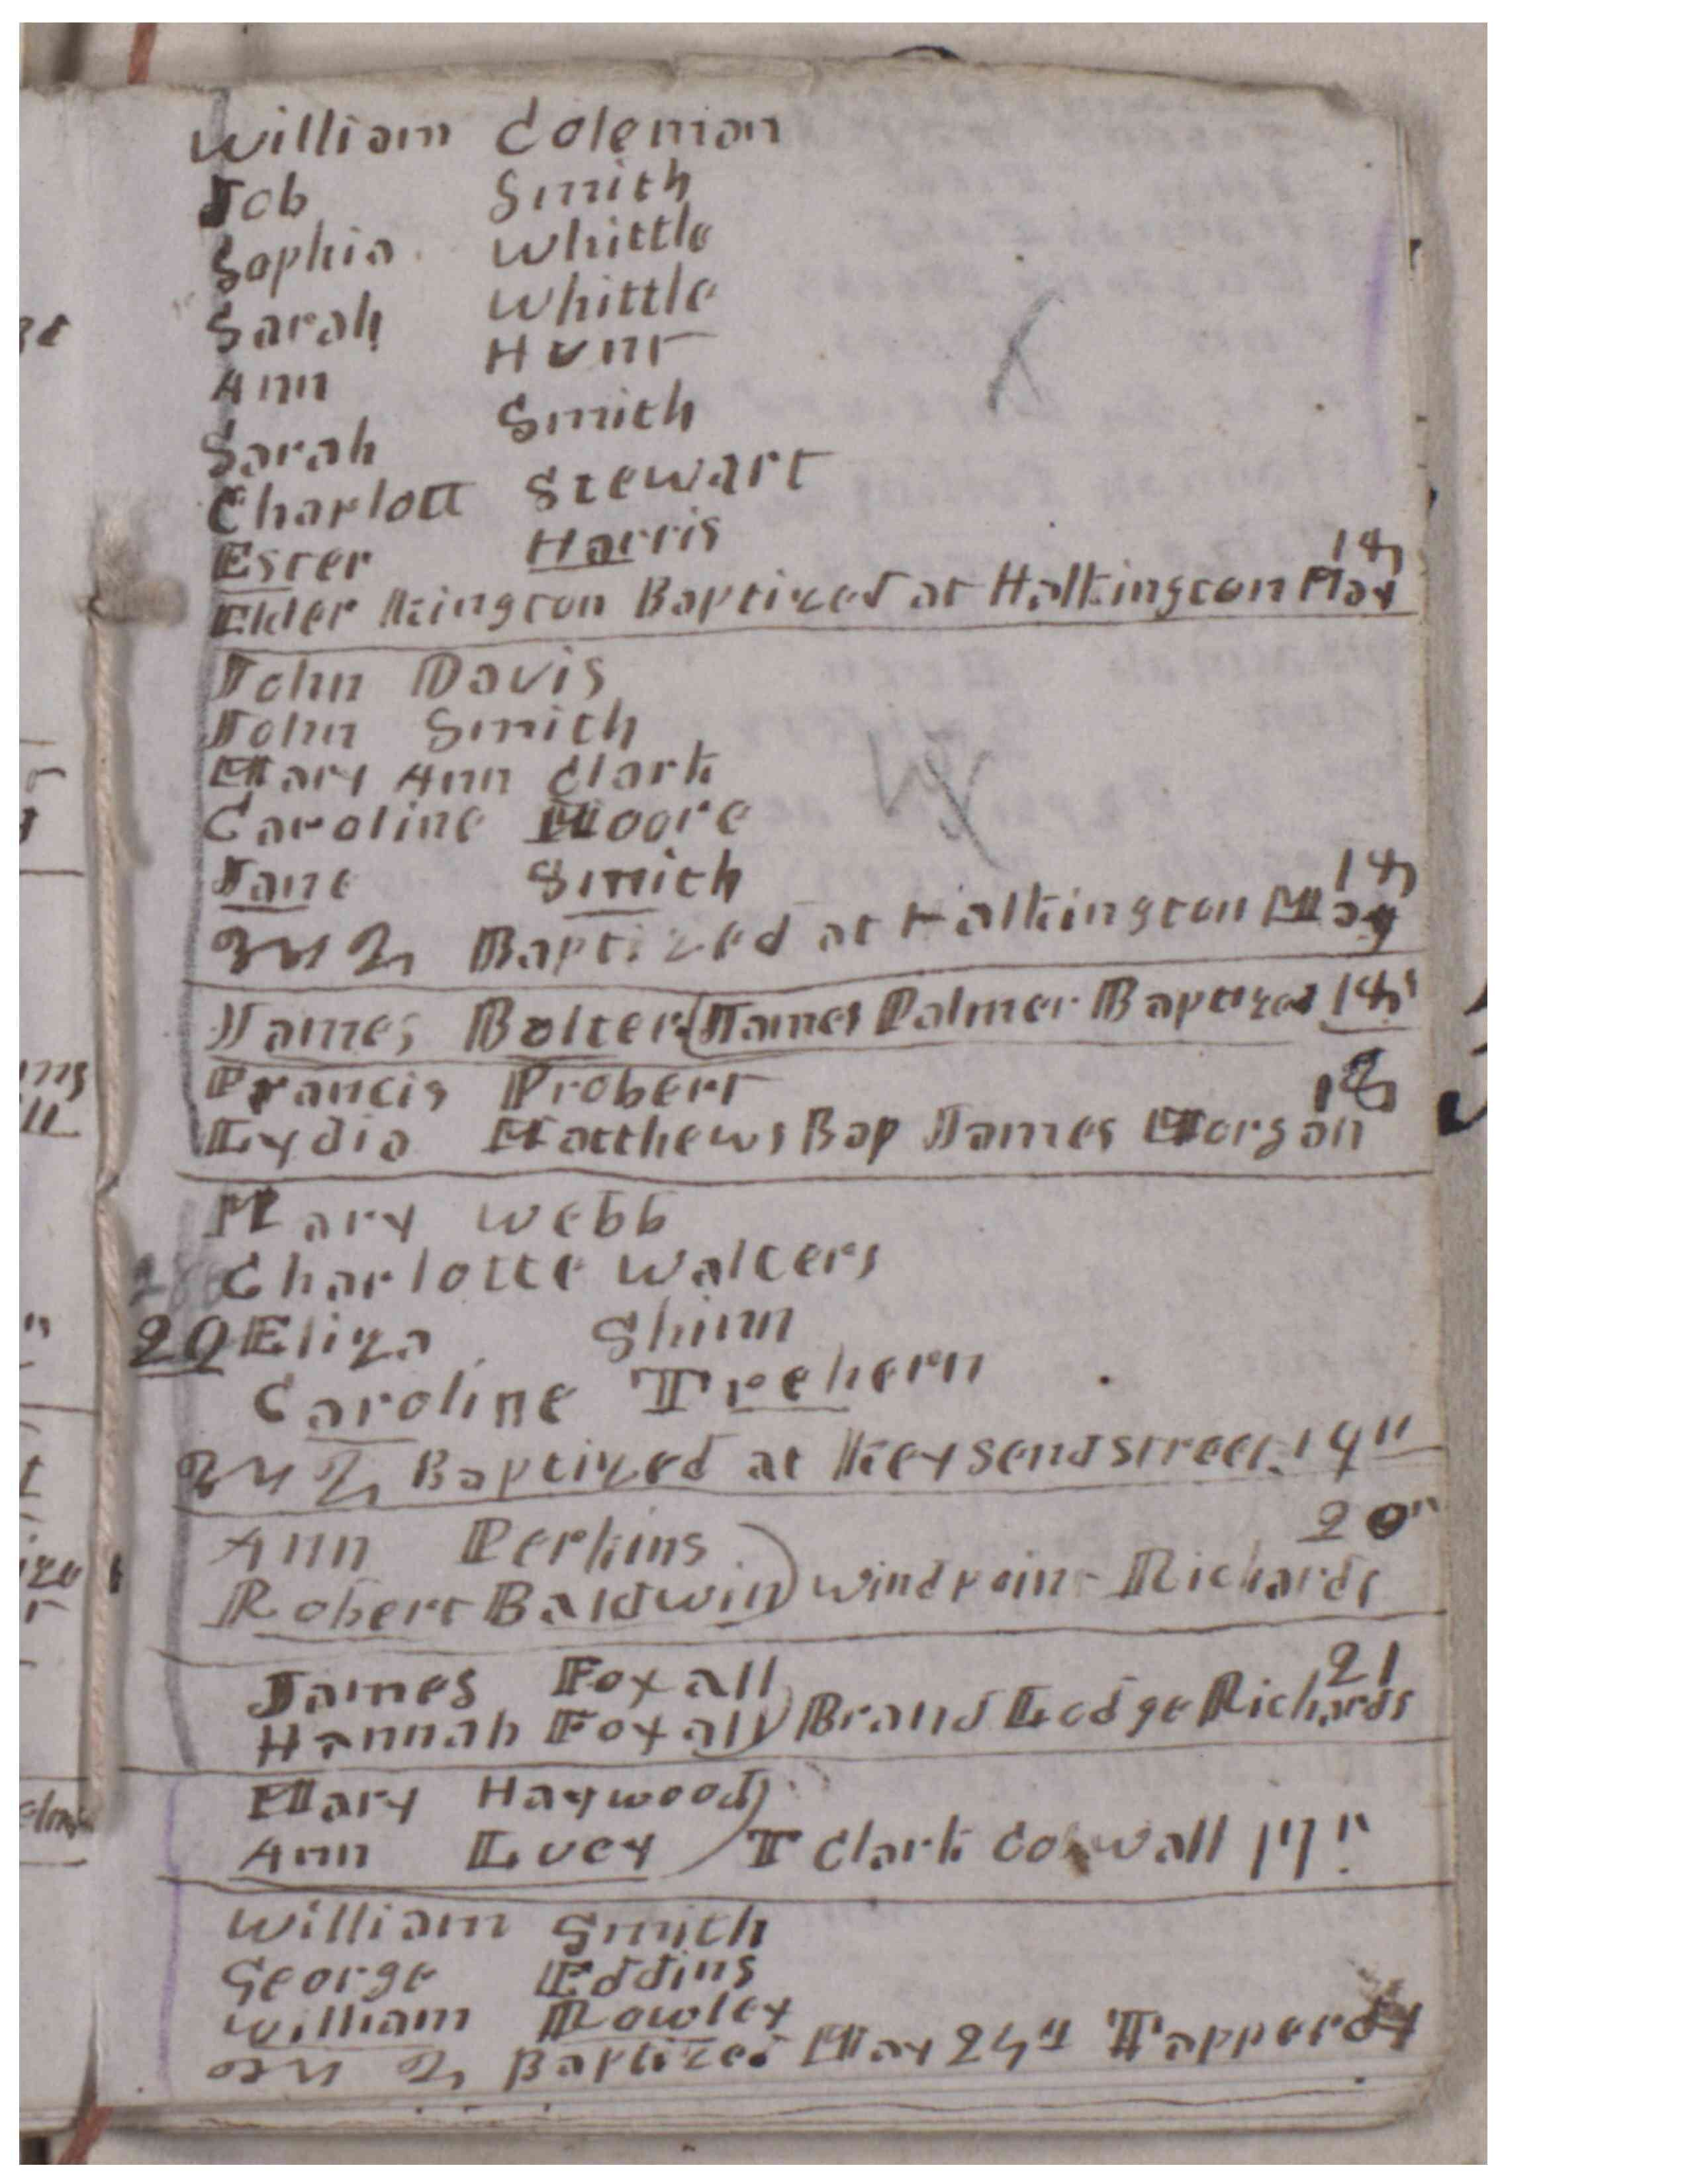 William Coleman
Job Smith
Sophia Whittle
Sarah Whittle
Ann Hunt
Sarah Smith
Charlott Stewart
Ester Harris
18
Elder Kington Baptized at Halkington May
John Davis
John Smith
Mary Ann Clark
Caroline Moore
Jane Smith
18
Baptized at Halkington May
James Bolter James Palmer Baptized 18
Francis Probert
18
Lydia Matthews Bap James Morgan
Mary Webb
Charlotte Walters
20 Eliza Shinn
Caroline Trehern
Baptized at Keysend street 19"
Ann Perkins 20"
Robert Baldwin Windpoint Richards
James Foxall 21
Hannah Foxall Brand Lodge Richards
Mary Haywood
Ann Lucy T Clark Colwall 17"
William Smith
George Eddins
William Rowley
Baptized May 24